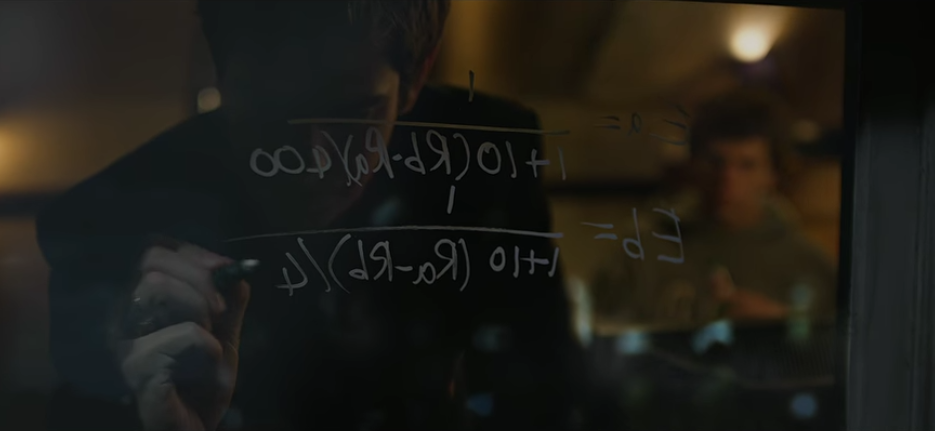 Ea = 1
1+10(Rb-Ra)/400
Eb = 1
1+10(Ra-Rb)/4